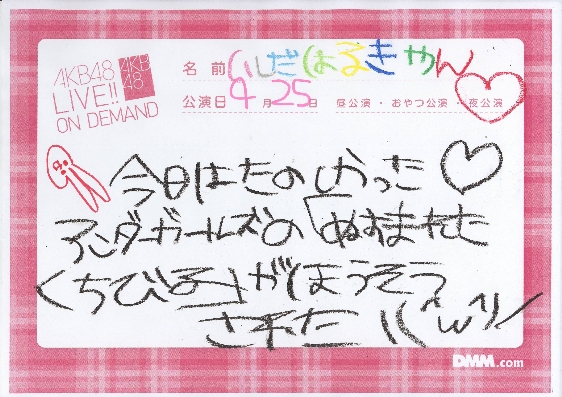 AKB48
LIVE!!
ON DEMAND
AKB
48
名前 いしだはるきゃん
公演日 4月25日 昼公演・おやつ公演・夜公演
今日はたのしかった♡
アンダーガールズの「ぬすまれた
くちびる」がほうそう
された \\(^ω^)//
DMM.com